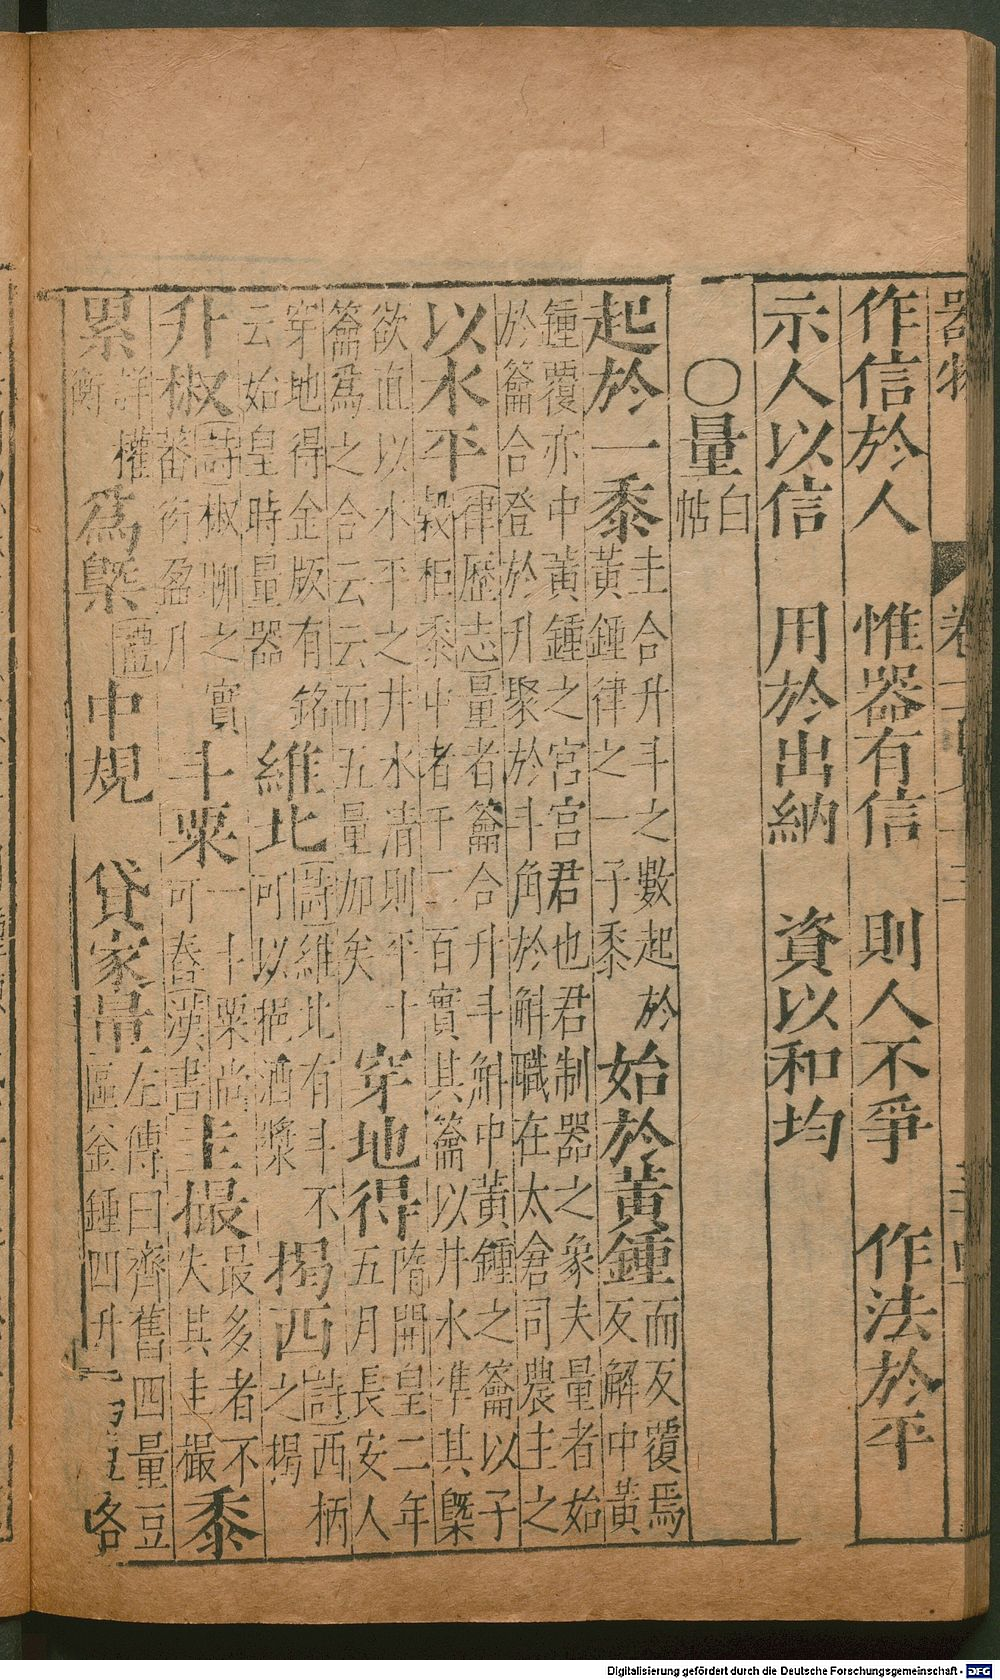 器物
作信於人　惟器有信　則人不爭　作法於平
示人以信　用於出納　資以和均
○量白帖
起於一黍圭合升斗之數起於黃鍾律之一子黍始於黃鍾而反覆焉反解中黃
鍾覆亦中黃鍾之宮宮君也君制器之象夫量者始於籥合登於升聚於斗角於斛職在太倉司農主之
以水平律歷志量者籥合升斗斛中黃鍾之籥以子穀秬黍中者千二百實其籥以井水準其槩
欲直以水平之井水清則平十籥為之合云云而五量加矣穿地得隋開皇二年五月長安人
穿地得金版有銘云始皇時量器維北詩維北有斗不可以挹酒漿揭西詩西柄之揭
升椒詩椒聊之實蕃衍盈升斗粟一十粟尚可舂漢書圭撮最多者不失其圭撮黍
累詳權衡為槩禮中規貸家量左傳曰齊舊四量豆區釜鍾四升
Digitalisierung gefördert durch die Deutsche Forschungsgemeinschaft - DFG